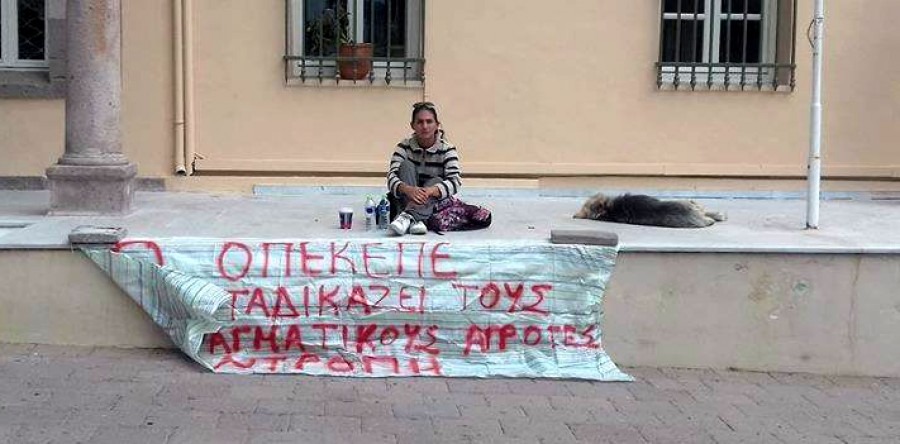 Ο ΟΠΕΚΕΠΕ
ΤΑΔΙΚΑΖΕΙ ΤΟΥΣ
ΑΓΜΑΤΙΚΟΥΣ ΑΓΡΟΤΕΣ
ΝΤΡΟΠΗ